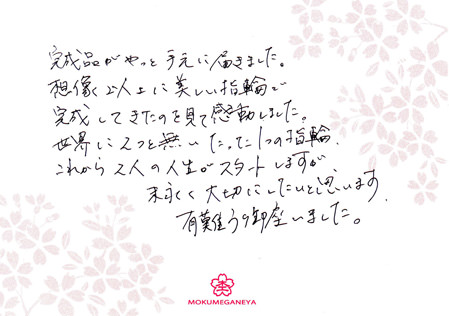 完成品がやっと手元に届きました。
想像以上に美しい指輪で
完成してきたのを見て感動しました。
世界に2つと無いたった1つの指輪、
これから2人の人生がスタートしますが
末永く大切にしたいと思います。
有難う御座いました。
MOKUMEGANEYA